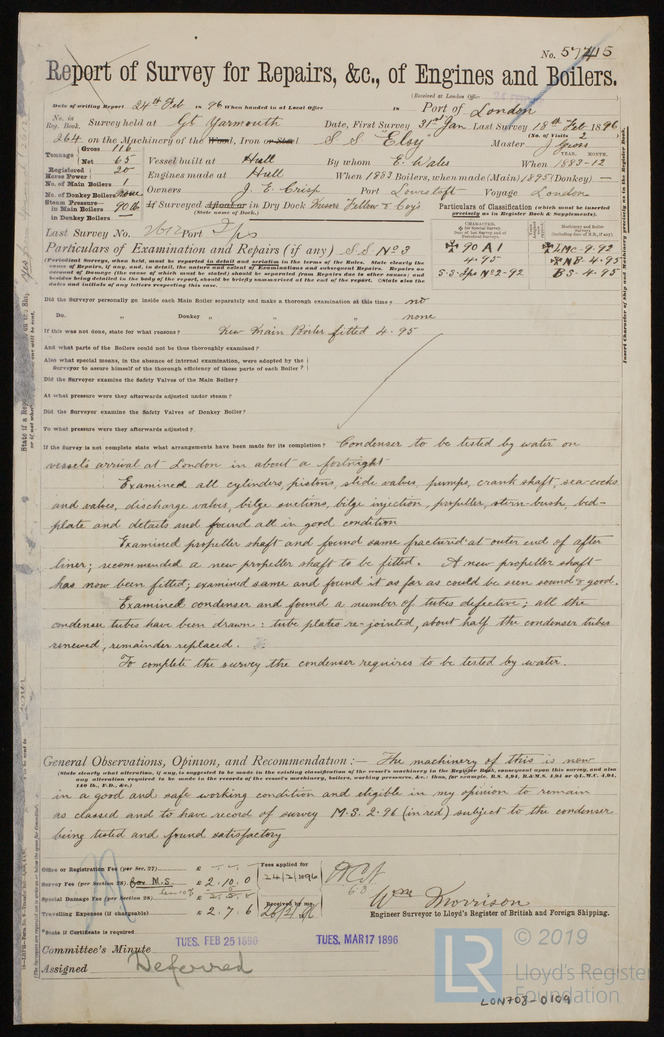 No. 57415
Report of Survey for Repairs, &c., of Engines and Boilers.
(Received at London Office
Date of writing Report 24th Feb 1896 When handed in at Local Office 18 Port of London
No. in Reg. Book. Survey held at Gt Yarmouth Date, First Survey 31st Jan Last Survey 18th Feb 1896
(No. of Visits 2
264 on the Machinery of the Wood, Iron or Steel S S "Eloy" Master J Gross
YEAR. MONTH.
Tonnage Gross 116 Net 65 Vessel built at Hull By whom E. Wales When 1883-12
Registered Horse Power 20 Engines made at Hull When 1883 Boilers, when made (Main) 1895 (Donkey) —
No. of Main Boilers 1
No. of Donkey Boilers None Owners J. E. Crisp Port Lowestoft Voyage London
Steam Pressure in Main Boilers 90 lb If Surveyed Afloat or in Dry Dock Messrs Fellow & Coy's
in Donkey Boilers — (State name of Dock.)
Particulars of Classification (which must be inserted precisely as in Register Book & Supplements).
Last Survey No. Port
Particulars of Examination and Repairs (if any) S S No 3
(Periodical Surveys, when held, must be reported in detail and seriatim in the terms of the Rules. State clearly the
cause of Repairs, if any, and, in detail, the nature and extent of Examinations and subsequent Repairs. Repairs on
account of Damage (the cause of which must be stated) should be separated from Repairs due to other causes; and
besides being detailed in the body of the report, should be briefly summarised at the end of the report. State also the
dates and initials of any letters respecting this case.
✠ 90 A 1 ✠ LMC 9.92
4.95 ✠ NB 4.95
S.S. No 2-92 BS 4.95
Did the Surveyor personally go inside each Main Boiler separately and make a thorough examination at this time? no
Do. " Donkey " " " none
If this was not done, state for what reasons? New Main Boiler fitted 4.95
And what parts of the Boilers could not be thus thoroughly examined?
Also what special means, in the absence of internal examination, were adopted by the
Surveyor to assure himself of the thorough efficiency of those parts of each Boiler?
Did the Surveyor examine the Safety Valves of the Main Boiler?
At what pressure were they afterwards adjusted under steam?
Did the Surveyor examine the Safety Valves of Donkey Boiler?
To what pressure were they afterwards adjusted?
If the Survey is not complete state what arrangements have been made for its completion? Condenser to be tested by water on
vessel's arrival at London in about a fortnight
Examined all cylinders, pistons, slide valves, pumps, crank shaft, sea-cocks
and valves, discharge valves, bilge suctions, bilge injection, propeller, stern-bush, bed-
plate and details and found all in good condition
Examined propeller shaft and found same fractured at outer end of after
liner; recommended a new propeller shaft to be fitted. A new propeller shaft
has now been fitted; examined same and found it as far as could be seen sound & good.
Examined condenser and found a number of tubes defective; all the
condenser tubes have been drawn: tube plates re-jointed, about half the condenser tubes
renewed, remainder replaced.
To complete the survey the condenser requires to be tested by water.
General Observations, Opinion, and Recommendation:— The machinery of this is now
(State clearly what alteration, if any, is suggested to be made in the existing classification of the vessel's machinery in the Register Book, consequent upon this survey, and also
any alteration required to be made in the records of the vessel's machinery, boilers, working pressures, &c.: thus, for example, B.S. 4,94, B.&M.S. 4,94 or ✠L.M.C. 4,94,
140 lb., F.D., &c.)
in a good and safe working condition and eligible in my opinion to remain
as classed and to have record of survey M.S. 2.96 (in red) subject to the condenser
being tested and found satisfactory
Office or Registration Fee (per Sec. 27) £ Fees applied for
Survey Fee (per Section 28) M.S. £ 2.10.0 24/2/1896
less 10%
Special Damage Fee (per Section 28) £ 2.5.0 Received by me,
Travelling Expenses (if chargeable) £ 2.7.6
Wm Morrison
Engineer Surveyor to Lloyd's Register of British and Foreign Shipping.
State if Certificate is required
Committee's Minute TUES. FEB 25 1896 TUES. MAR 17 1896
Assigned Deferred
© 2019
LR Lloyd's Register
Foundation
LON708-0109